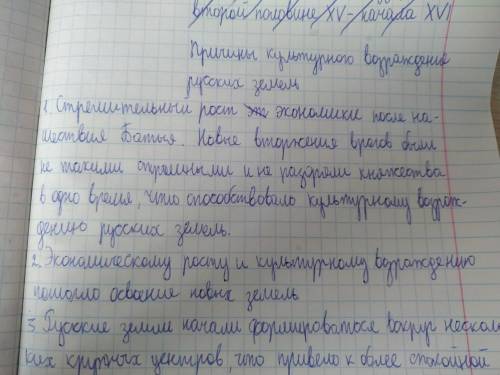 второй половине XV - начала XVI
Причины культурного возраждения
русских земель
1. Стремительный рост экономики после на-
шествия Батыя. Новые вторжения врагов были
не такими страшными и не раздроли княжества
в одно время, что способствовало культурному возраж-
дению русских земель.
2. Экономическому росту и культурному возраждению
помогло освоение новых земель
3. Русские земли начали формироваться вокруг несколь
ких крупных центров, что привело к более спокойной